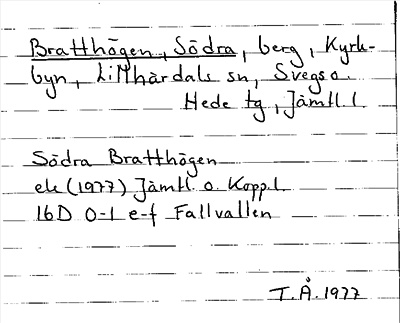 Bratthögen, Södra, berg, Kyrk-
byn, Lillhärdals sn, Svegs o.
Hede tg, Jämtl. l.
Södra Bratthögen
ek (1977) Jämtl. o. Kopp. l.
16D 0-1 e-f Fallvallen
T.Å. 1977